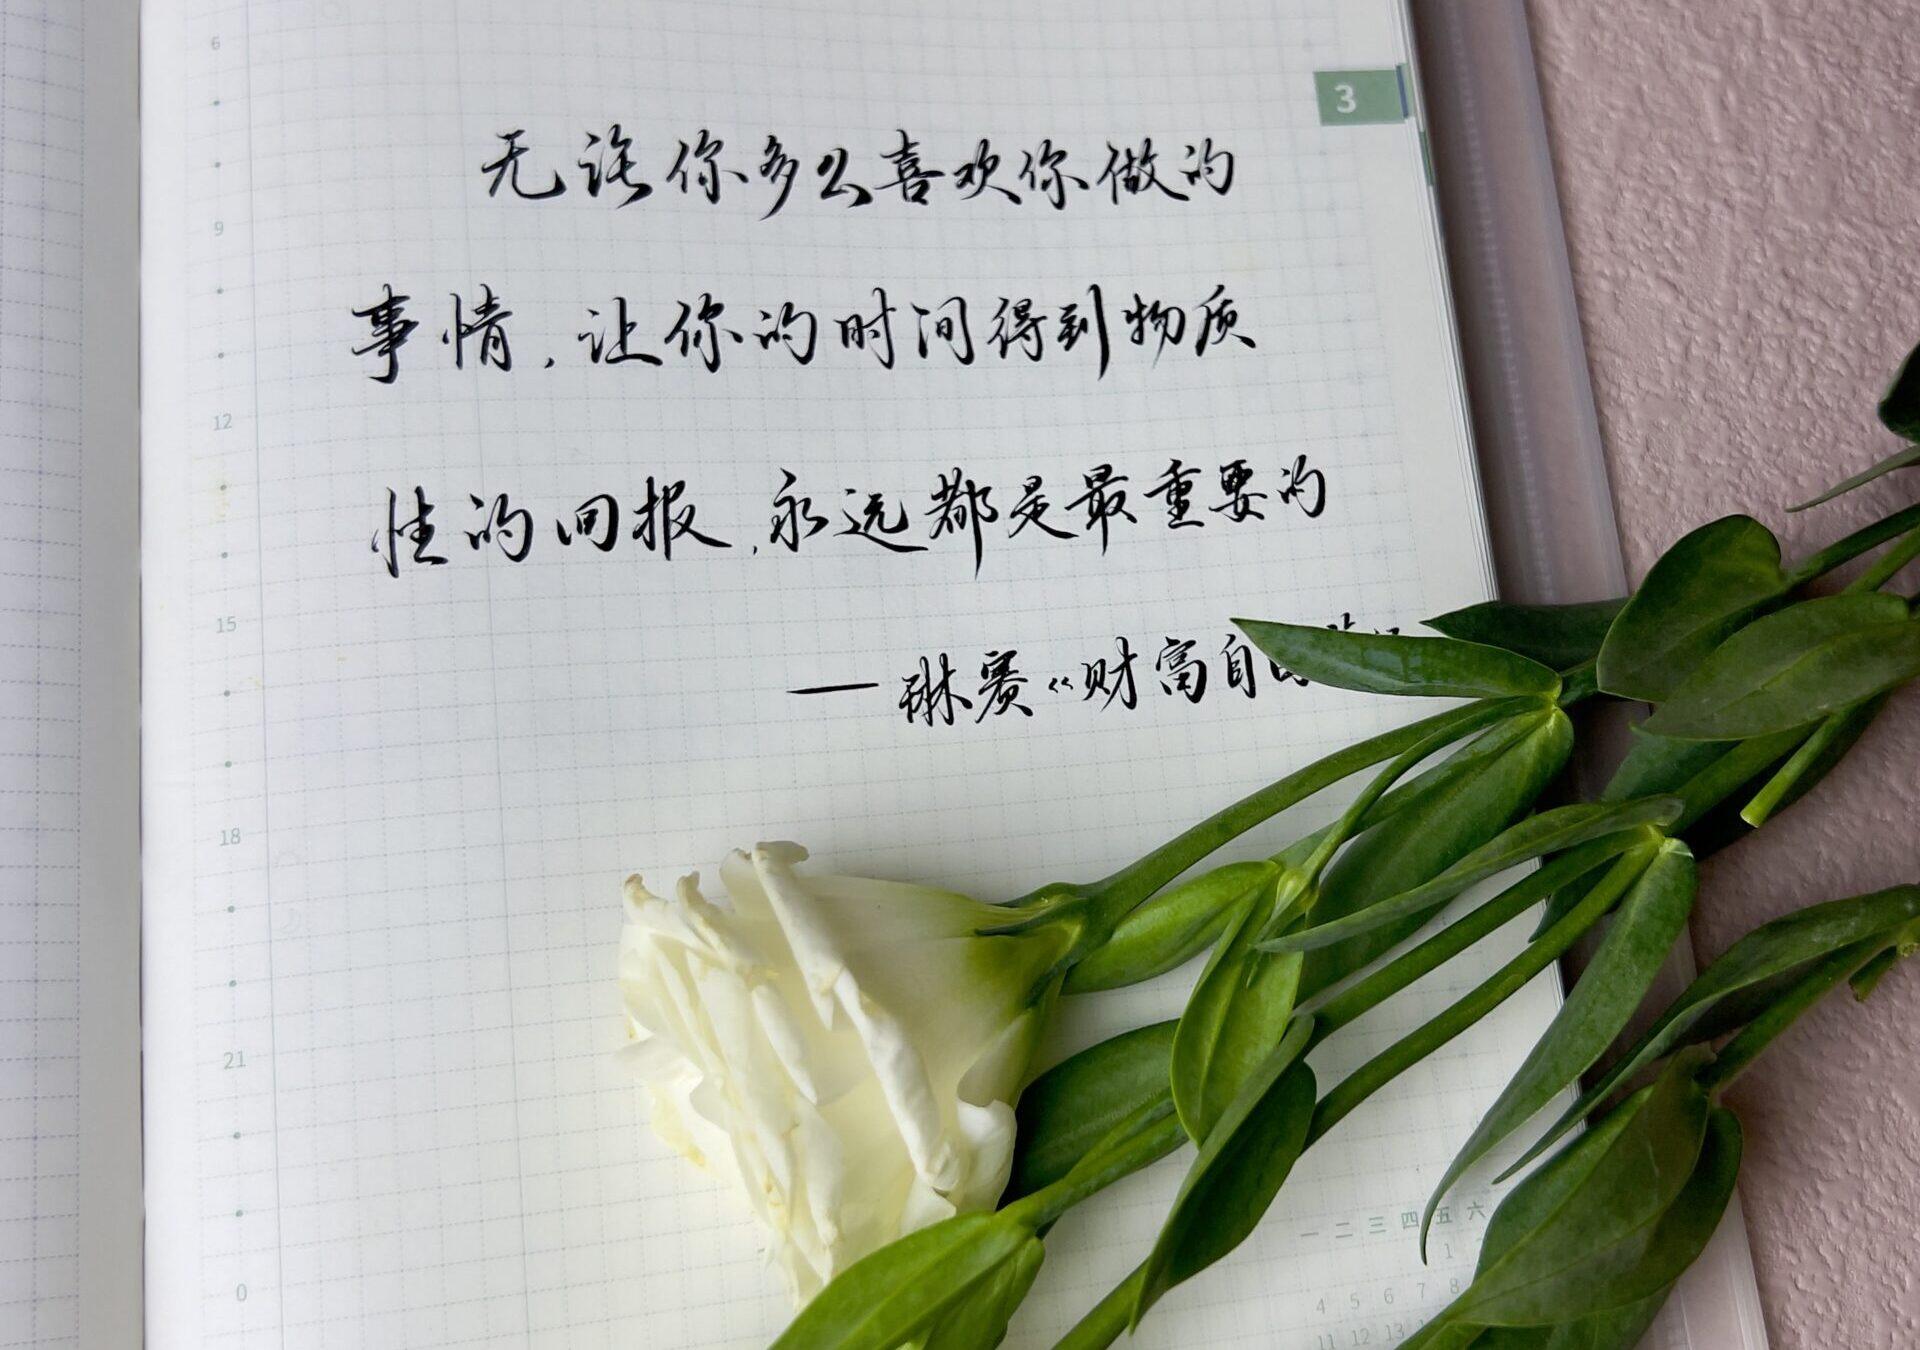 6
3
无论你多么喜欢你做的
9
事情,让你的时间得到物质
12
性的回报,永远都是最重要的
15
—琳赛《财富自
18
21
0
一 二 三 四 五 六
1
4 5 6 7 8
11 12 13